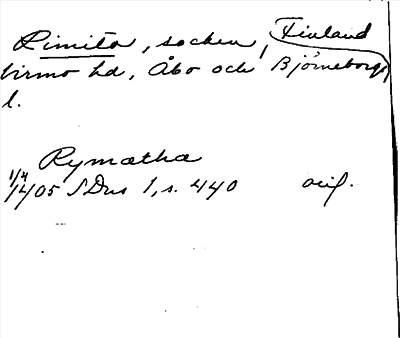 Rimito, socken, Finland
Virmo hd, Åbo och Björneborgs
l.
Rymatha
1/4 1405 SDns 1, s. 440 orig.